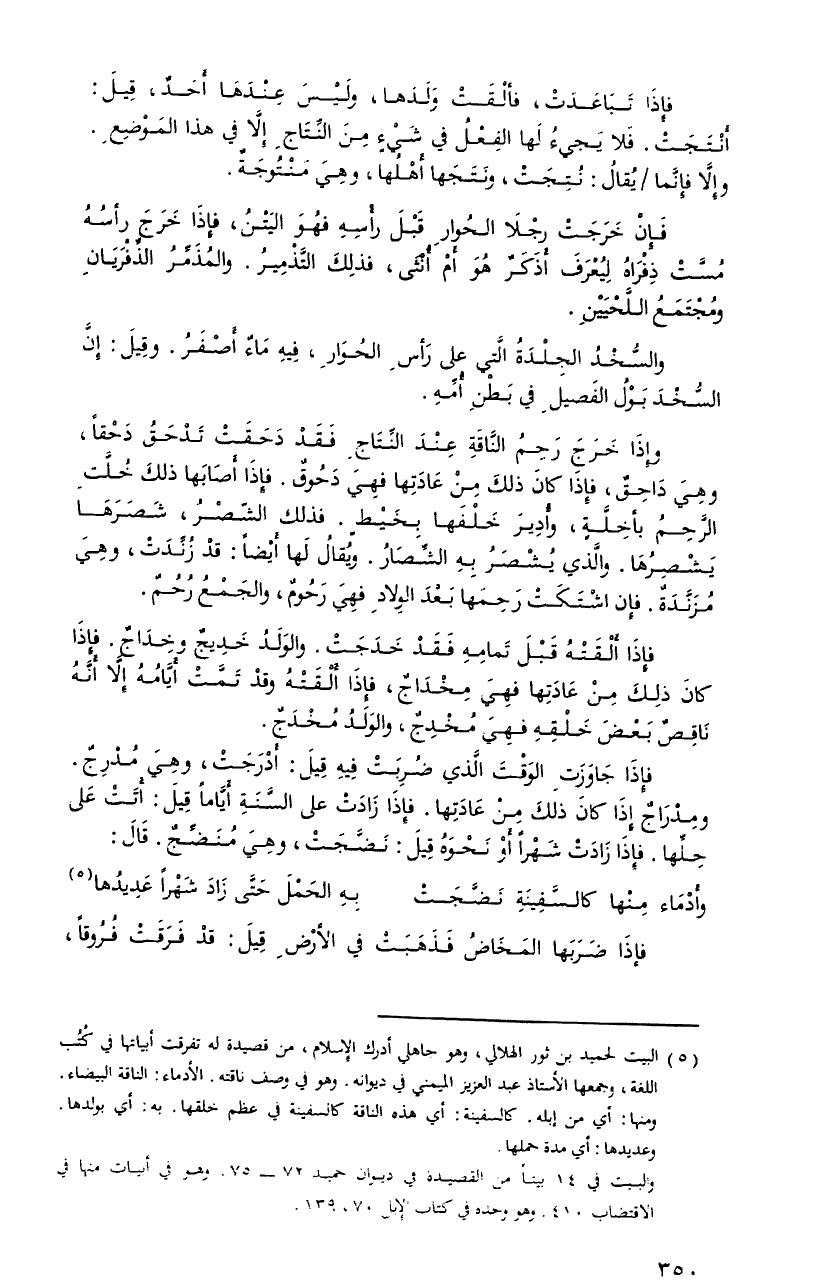 فإِذَا تَبَاعَدَتْ، فألْقَتْ وَلَدَها، ولَيْسَ عِنْدَهَا أَحَدٌ، قِيلَ:
أَنْتَجَتْ. فَلا يَجيءُ لَها الفِعْلُ في شَيْءٍ مِنَ النِّتَاجِ إِلَّا في هذا المَوْضِعِ.
وإلَّا فإنَّما / يُقالُ: نُتِجَتْ، ونَتَجَها أَهْلُها، وهِيَ مَنْتُوجَةٌ.
فَإِنْ خَرَجَتْ رِجْلَا الحُوارِ قَبْلَ رأْسِهِ فهُوَ اليَتْنُ، فإذَا خَرَجَ رأسُهُ
مُسَّتْ ذِفْرَاهُ لِيُعْرَفَ أَذَكَرٌ هُوَ أَمْ أُنْثَى، فذلِكَ التَّذْمِيرُ. والمُذَمَّرُ الذِّفْرَيَانِ
ومُجْتَمَعُ اللَّحْيَيْنِ.
والسُّخْدُ الجِلْدَةُ الَّتي على رَأسِ الحُوَارِ، فِيهِ مَاءٌ أَصْفَرُ. وقِيلَ: إِنَّ
السُّخْدَ بَوْلُ الفَصيلِ في بَطْنِ أُمِّهِ.
وإِذَا خَرَجَ رَحِمُ النَّاقَةِ عِنْدَ النِّتَاجِ فَقَدْ دَحَقَتْ تَدْحَقُ دَحْقاً،
وهِيَ دَاحِقٌ، فإذَا كانَ ذلكَ مِنْ عَادَتِها فهِيَ دَحُوقٌ. فإذَا أصَابَها ذلكَ خُلَّتِ
الرَّحِمُ بأَخِلَّةٍ، وأُدِيرَ خَلْفَها بِخَيْطٍ. فذلك الشَّصْرُ، شَصَرَهَا
يَشْصِرُهَا. والَّذي يُشْصَرُ بِهِ الشِّصَارُ. ويُقالُ لَها أَيْضاً: قدْ زُنِّدَتْ، وهِيَ
مُزَنَّدَةٌ. فإن اشْتَكَتْ رَحِمَها بَعْدَ الوِلادِ فهِيَ رَحُومٌ، والجَمْعُ رُحُمٌ.
فإذَا أَلْقَتْهُ قَبْلَ تَمامِهِ فَقَدْ خَدَجَتْ. والوَلَدُ خَدِيجٌ وخِدَاجٌ. فإذَا
كانَ ذلِكَ مِنْ عَادَتِها فهِيَ مِخْدَاجٌ، فإذَا أَلْقَتْهُ وقَدْ تَمَّتْ أَيَّامُهُ إلَّا أَنَّهُ
نَاقِصٌ بَعْضَ خَلْقِهِ فهِيَ مُخْدِجٌ، والوَلَدُ مُخْدَجٌ.
فإذَا جَاوَزَتِ الوَقْتَ الَّذي ضُرِبَتْ فِيهِ قِيلَ: أَدْرَجَتْ، وهِيَ مُدْرِجٌ.
ومِدْرَاجٌ إذَا كانَ ذلكَ مِنْ عَادَتِها. فإذَا زَادَتْ على السَّنَةِ أَيَّاماً قِيلَ: أَتَتْ عَلى
حِلِّها. فإذَا زَادَتْ شَهْراً أَوْ نَحْوَهُ قِيلَ: نَضَّجَتْ، وهِيَ مُنَضِّجٌ. قَالَ:
وأَدْمَاء مِنْها كالسَّفِينَةِ نَضَّجَتْ بِهِ الحَمْلَ حَتَّى زَادَ شَهْراً عَدِيدُها(٥)
فإذَا ضَرَبَها المَخَاضُ فَذَهَبَتْ في الأَرْضِ قِيلَ: قدْ فَرَقَتْ فُرُوقاً،
(٥) البيت لحميد بن ثور الهلالي، وهو جاهلي أدرك الإسلام، من قصيدة له تفرقت أبياتها في كُتُب
اللغة، وجمعها الأستاذ عبد العزيز الميمني في ديوانه. وهو في وصف ناقته. الأدماء: الناقة البيضاء.
ومنها: أي من إبله. كالسفينة: أي هذه الناقة كالسفينة في عظم خلقها. به: أي بولدها.
وعديدها: أي مدة حملها.
والبيت في ١٤ بيتاً من القصيدة في ديوان حميد ٧٢ ــ ٧٥. وهو في أبيات منها في
الاقتضاب ٤١٠. وهو وحده في كتاب الإبل ٧٠، ١٣٩.
٣٥٠